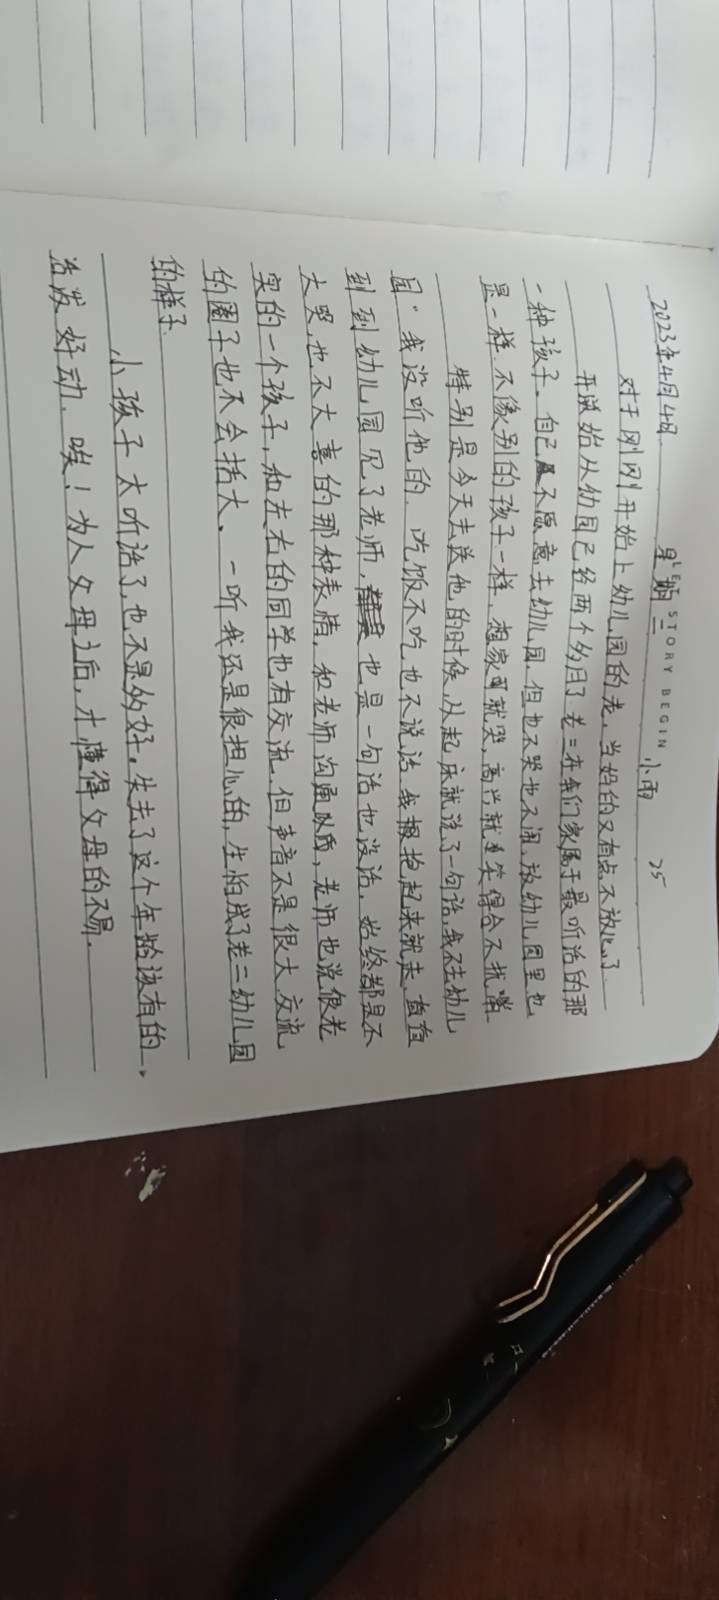 LET STORY BEGIN
2023年4月4日 星期二 小雨 25
对于刚刚开始上幼儿园的老 当妈的又有点不放心了
开始从幼目已经两个多月了 老三在我们家属于最听话的那
一种孩子. 自己不愿意去幼儿园. 但也不哭也不闹. 放幼儿园里也
是一样. 不像别的孩子一样. 想家就哭. 高兴就笑得合不拢嘴
特别是今天去送他的时候. 从起床就说了一句话. 我不去幼儿
园. 我没听他的. 吃饭不吃. 也不说话. 我抱起来就走. 直
到到幼儿园见了老师, 也是一句话也没话. 始终都是不
大哭. 也不大喜的那种表情. 和老师沟通以后, 老师也说很老
实的一个孩子, 和左右的同学也有交流. 但声音不是很大. 交流
的圈子也不会括大. 一听我还是很担心的, 生怕成了老二幼儿园
的样子.
小孩子太听话了, 也不是多好. 失去了这个年龄该有的
活泼好动. 唉! 为人父母之后, 才懂得父母的不易.